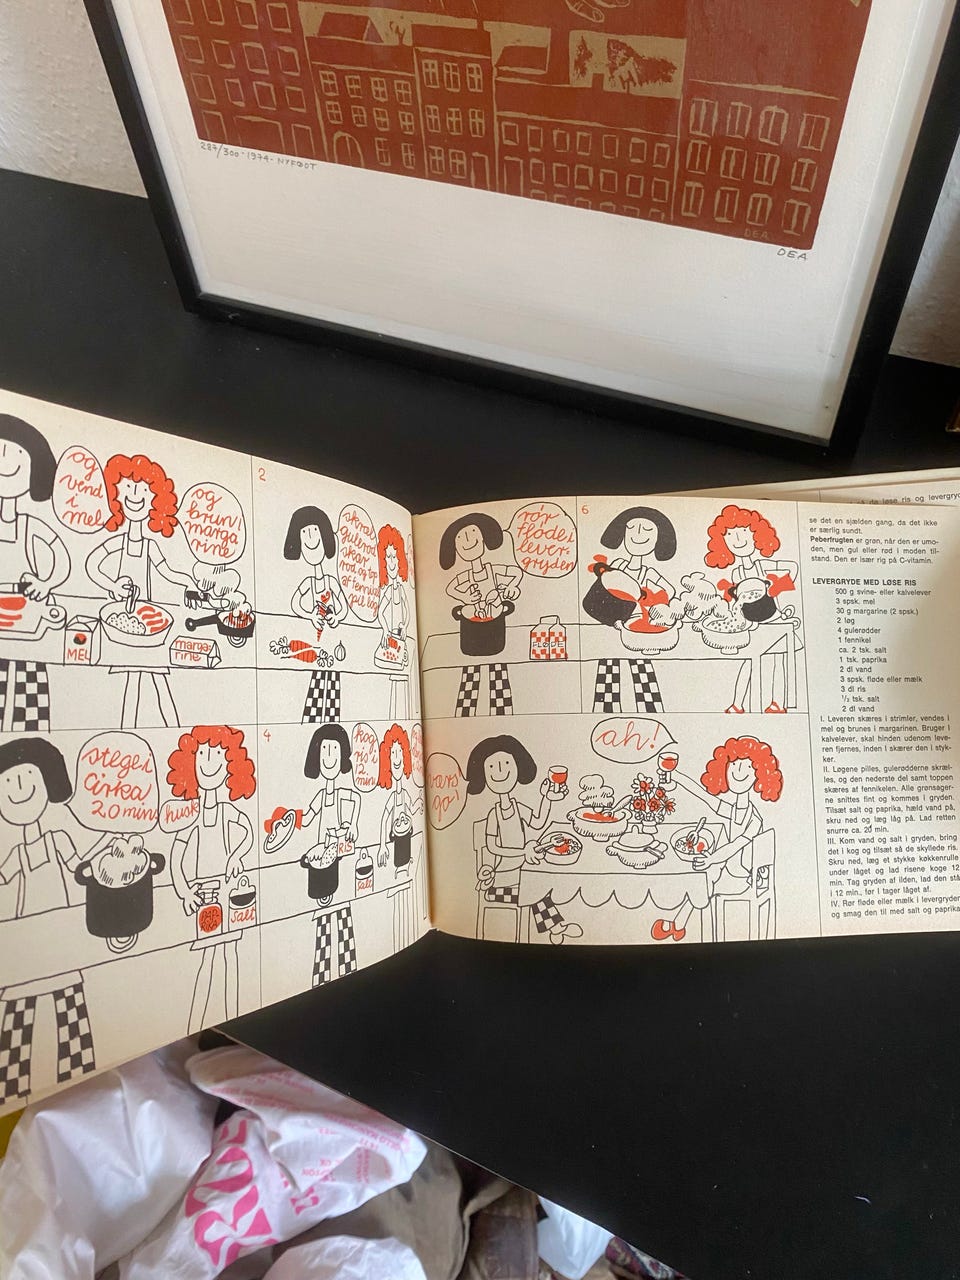 287/300 - 1974 - NYFØDT
DEA
DEA
og
vend
i
mel
og
brun i
marga
rine
MEL
marga-
rine
2
skræl
gulerod
skær
rod og top
af fennikel
pil løg
stege i
cirka
20 min
husk
PAP
RIKA
Salt
4
kog
ris i
12.
min
RIS
Salt
rør
fløde i
lever-
gryden
FLØDE
6
ah!
værs
go!
de løse ris og levergryd
se det en sjælden gang, da det ikke
er særlig sundt.
Peberfrugten er grøn, når den er umo-
den, men gul eller rød i moden til-
stand. Den er især rig på C-vitamin.
LEVERGRYDE MED LØSE RIS
500 g svine- eller kalvelever
3 spsk. mel
30 g margarine (2 spsk.)
2 løg
4 gulerødder
1 fennikel
ca. 2 tsk. salt
1 tsk. paprika
2 dl vand
3 spsk. fløde eller mælk
3 dl ris
½ tsk. salt
2 dl vand
I. Leveren skæres i strimler, vendes i
mel og brunes i margarinen. Bruger I
kalvelever, skal hinden udenom leve-
ren fjernes, inden I skærer den i styk-
ker.
II. Løgene pilles, gulerødderne skræl-
les, og den nederste del samt toppen
skæres af fennikelen. Alle grønsager-
ne snittes fint og kommes i gryden.
Tilsæt salt og paprika, hæld vand på,
skru ned og læg låg på. Lad retten
snurre ca. 20 min.
III. Kom vand og salt i gryden, bring
det i kog og tilsæt så de skyllede ris.
Skru ned, læg et stykke køkkenrulle
under låget og lad risene koge 12
min. Tag gryden af ilden, lad den stå
i 12 min., før I tager låget af.
IV. Rør fløde eller mælk i levergryden
og smag den til med salt og paprika